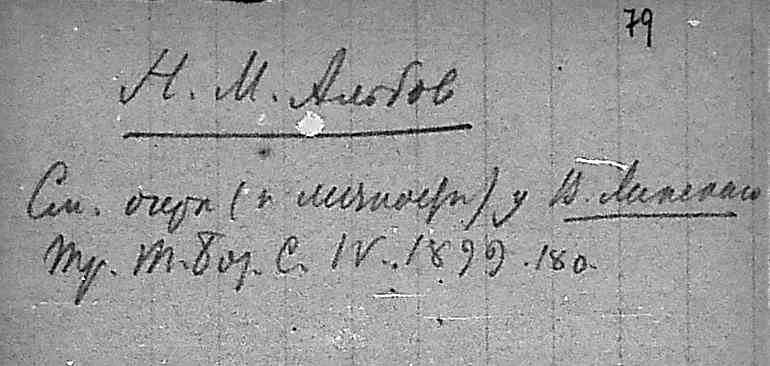 79
Н. М. Альбов
См. очерк (и личности) у В. Липского
Тр. Т. Бот. С. IV. 1899. 180.